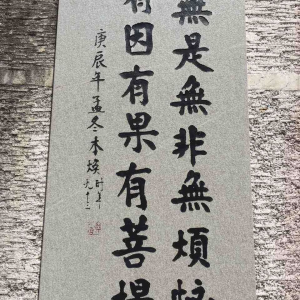 無是無非無煩惱
有因有果有菩提
庚辰年孟冬木煥時年九十二